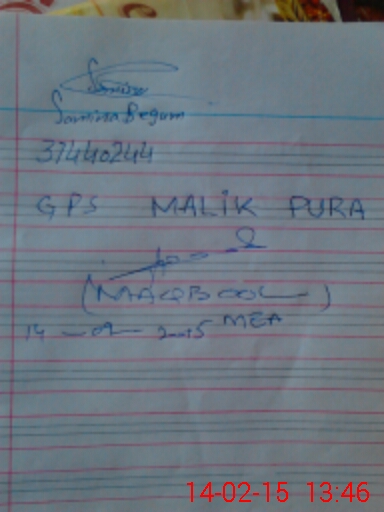 Samina
Samina Begum
37440244
GPS MALIK PURA
(MAQBOOL)
MEA
14-02-2015
14-02-15 13:46